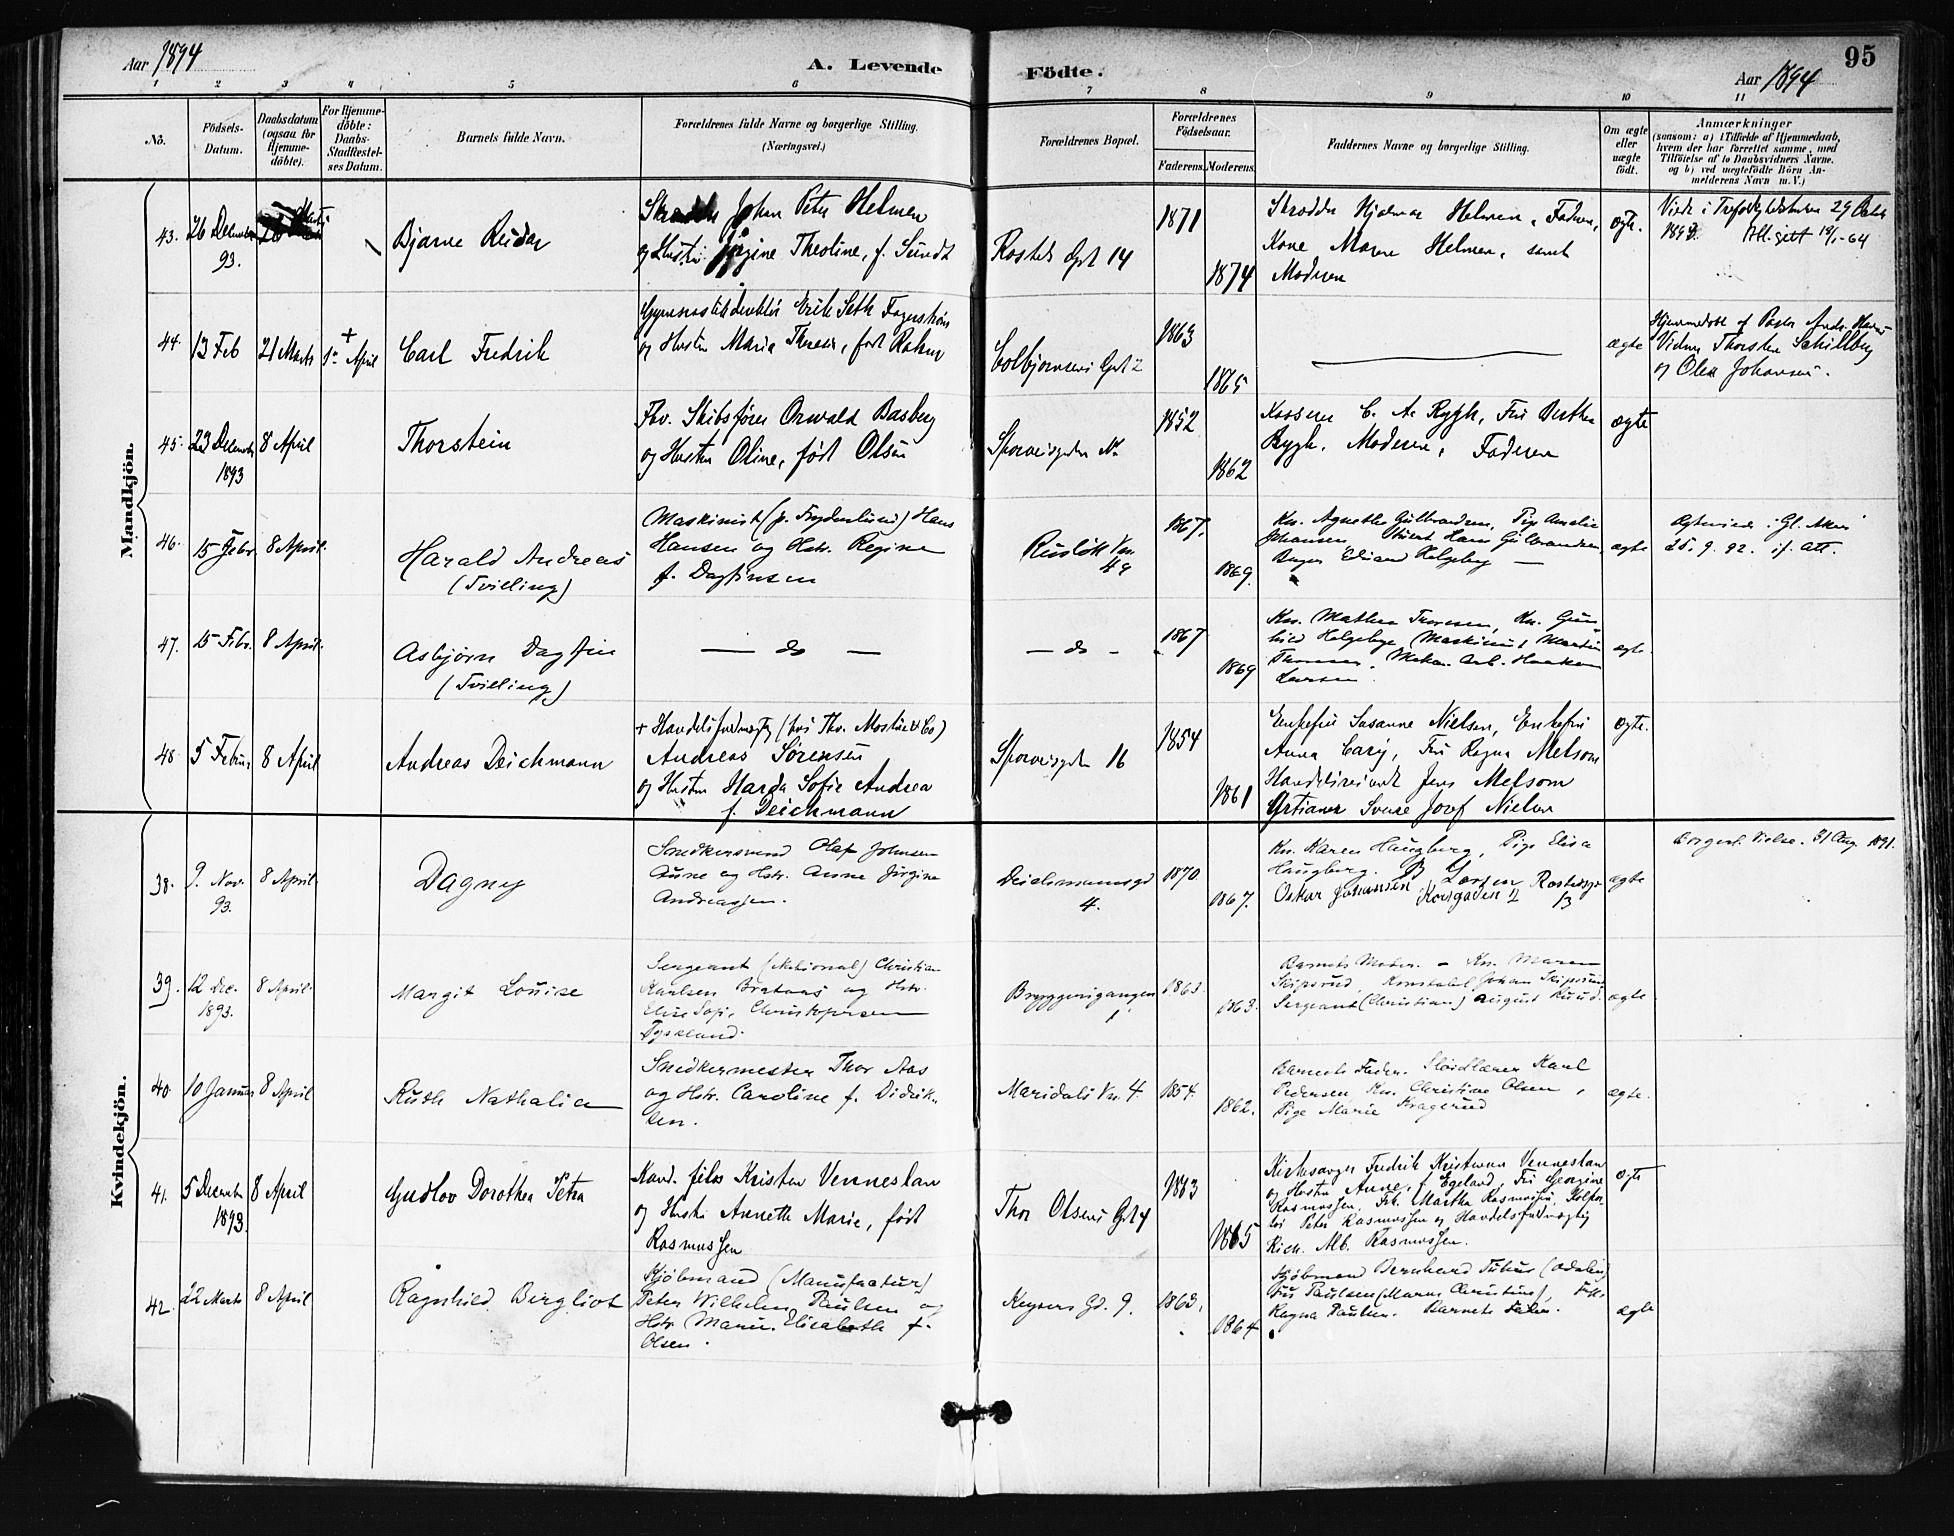 Aar 1894
A. Levende
Födte.
Aar 1894
95
1 2 3 4 5 6 7 8 9 10 11
No.
Födsels-
Datum.
Daabsdatum
(ogsaa for
Hjemme-
döbte).
For Hjemme-
döbte:
Daabs-
Stadfæstel-
ses Datum.
Barnets fulde Navn.
Forældrenes fulde Navne og borgerlige Stilling.
(Næringsvei.)
Forældrenes Bopæl.
Forældrenes
Födselsaar.
Faderens.
Moderens.
Faddernes Navne og borgerlige Stilling.
Om ægte
eller
uægte
födt.
Anmærkninger
(saasom: a) i Tilfælde af Hjemmedaab,
hvem der har forrettet samme, med
Tilföielse af to Daabsvidners Navne.
og b) ved uægtefödte Börn An-
melderens Navn m. V.)
Mandkjön.
43.
26 Decembr
93.
Bjarne Reidar
Johan Peter Helmen
og Hustru Jørgine Theoline, f. Sundt
Rosteds Gt 14
1871
1874
Skrædder Hjalmar Helmen, Faderen,
Kone Maren Helmen, samt
Moderen
ægte.
Viede i Trefoldighedskirken 29
44.
13 Feb
21 Marts
+
April
Carl Fredrik
Gymnastikdirektør Erik Seth Fagerstrøm
og Hustru Maria Theresia, født
Colbjørnsens Gt 2
1863
1865
ægte
Hjemmedøbt af Pastor
Vidner Thorsten
og Olea Johansen.
45.
23 Decembr
1893
8 April
Thorstein
Fhv. Skibsfører Oswald Basberg
og Hustru Oline, født Olsen
Sporveisgaden
1852
1862
C. A. Rygh, Fru Berthe
Rygh. Moderen, Faderen
ægte
46.
15 Febr.
8 April.
Harald Andreas
(Tvilling)
Maskinist (p. Frydenlund) Hans
Hansen og Hstr. Regine
f. Dagfinsen
Rusløk Vn.
49
1867.
1869.
Kn. Agnethe Gulbrandsen, Pige Amalie
Johansen Hans Gulbrandsen,
Helgeby
ægte
Ægteviede i Gl. Aker
25. 9. 92. if. Att.
47.
15 Febr.
8 April.
Asbjørn Dagfin
(Tvilling)
— do —
— do -
1867
1869
Kn. Mathea Thoresen, Kn. Gun-
hild Helgeby, Maskinist Martin
Thoresen. Mekan. Arb. Haakon
Larsen.
ægte.
48.
5 Februar
8 April
Andreas Deichmann
+ Handelsfuldmægtig (hos Thv. Mostue & Co)
Andreas Sørensen
og Hustru Harda Sofie Andrea
f. Deichmann
Sporveisgaden 16
1854
1861
Enkefru Susanne Nielsen, Enkefru
Anna Carij, Fru Ragna Melsom
Handelsreisende Jens Melsom
Artianer Sverre Nielsen
ægte.
Kvindekjön.
38.
9. Nov.
93.
8 April.
Dagny
Snedkersvend Olaf Johnsen
Aune og Hstr. Anne Jørgine
Andreassen.
Deichmannsgd
4.
1870
1867.
Kn. Karen Haugberg, Pige Elisa
Haugberg. Larsen Rostedsgt
Oskar Johansen Korsgaden 2 13
ægte
Borgerl. Vielse. 31 Aug. 1891.
39.
12 Dec.
1893.
8 April.
Margit Louise
Sergeant (National) Christian
Karlsen Brataas og Hstr.
Elise Sofie Christophersen
Tyskland.
Bryggerigangen
1.
1863.
1863.
Barnets Moder. - Kn. Maren
Skipsrud, Konstabel Johan Skipsrud
Sergeant (Christian) August Ruud.
ægte
40.
10 Januar
8 April
Ruth Nathalia
Snedkermester Thor Aas
og Hstr. Caroline f. Didrik-
sen.
Maridals Vn. 4.
1854.
1862.
Barnets Fader. Sløidlærer Karl
Pedersen, Kn. Christine Olsen,
Pige Marie Kragerud
ægte.
41.
5 Decembr
1893.
8 April
Gudlov Dorothea Petra
Kand. filos Kristen Venneslan
og Hustru Annette Marie, født
Rasmussen
Thor Olsens Gt 4
1863
1865
Kirkesanger Fredrik Kristensen Venneslan
og Hustru Anne, f. Egeland, Fru Georgine
Rasmussen, Frk. Martha Rasmussen, Kolpor-
tør Peter Rasmussen og Handelsfuldmægtig
Rich. Alb. Rasmussen.
ægte
42.
22 Marts
8 April
Ragnhild Bergliot
Kjøbmand (Manufactur)
Peter Wilhelm Paulsen og
Hstr. Marie Elisabeth f.
Olsen.
Keysers Gd. 9.
1863.
1864.
Kjøbmand Bernhard
Fru Paulsen (Maren Christine), Frk.
Ragna Paulsen. Barnets Fader.
ægte